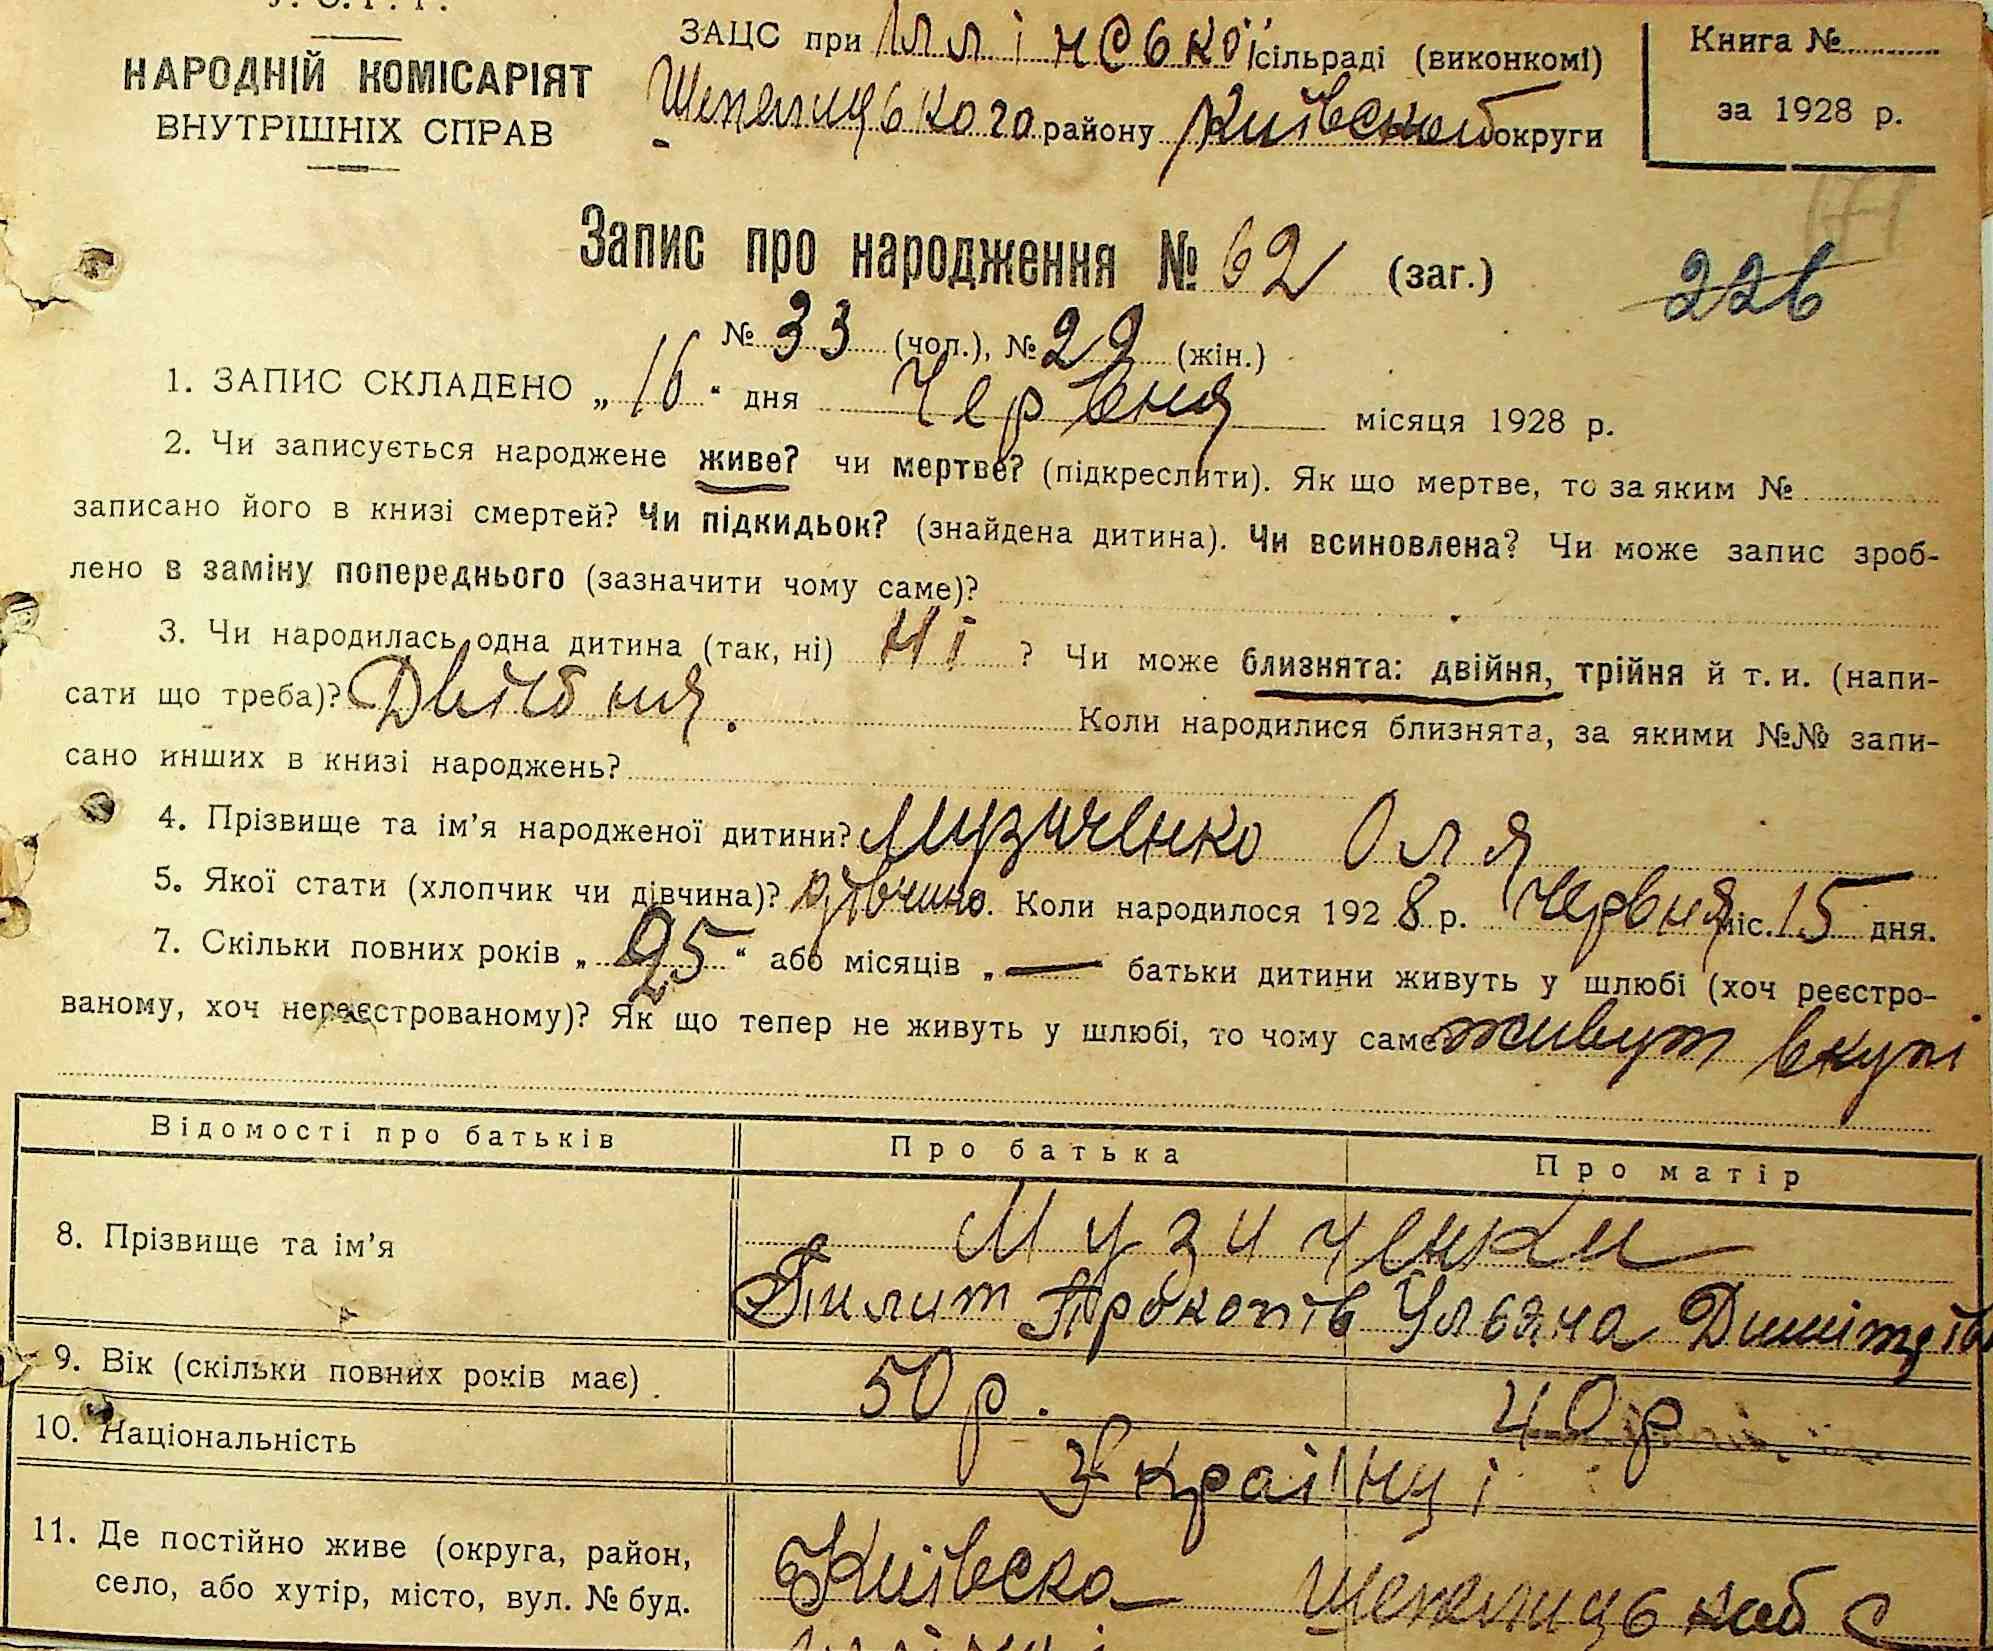 У. С. Р. Р.
НАРОДНІЙ КОМІСАРІЯТ
ВНУТРІШНІХ СПРАВ
ЗАЦС при Іллінської сільраді (виконкомі)
Шепелицького району Київської округи
Книга №
за 1928 р.
171
Запис про народження № 62 (заг.)
226
№ 33 (чол.), № 29 (жін.)
1. ЗАПИС СКЛАДЕНО „ 16 “ дня Червня місяця 1928 р.
2. Чи записується народжене живе? чи мертве? (підкреслити). Як що мертве, то за яким №
записано його в книзі смертей? Чи підкидьок? (знайдена дитина). Чи всиновлена? Чи може запис зроб-
лено в заміну попереднього (зазначити чому саме)?
3. Чи народилась одна дитина (так, ні) Ні ? Чи може близнята: двійня, трійня й т. и. (напи-
сати що треба)? Коли народилися близнята, за якими №№ запи-
сано инших в книзі народжень?
4. Прізвище та ім’я народженої дитини? Музиченко Оля
5. Якої стати (хлопчик чи дівчина)? дівчина. Коли народилося 1928 р. Червня міс. 15 дня.
7. Скільки повних років „ 25 “ або місяців „ — батьки дитини живуть у шлюбі (хоч реєстро-
ваному, хоч нереєстрованому)? Як що тепер не живуть у шлюбі, то чому саме живут вкупі
Відомості про батьків Про батька Про матір
8. Прізвище та ім’я Музиченки
Пилип Прокопів Ульяна Димітрів
9. Вік (скільки повних років має) 50 р. 40 р
10. Національність Украінці
11. Де постійно живе (округа, район, Київска Шепелицькоб с
село, або хутір, місто, вул. № буд.